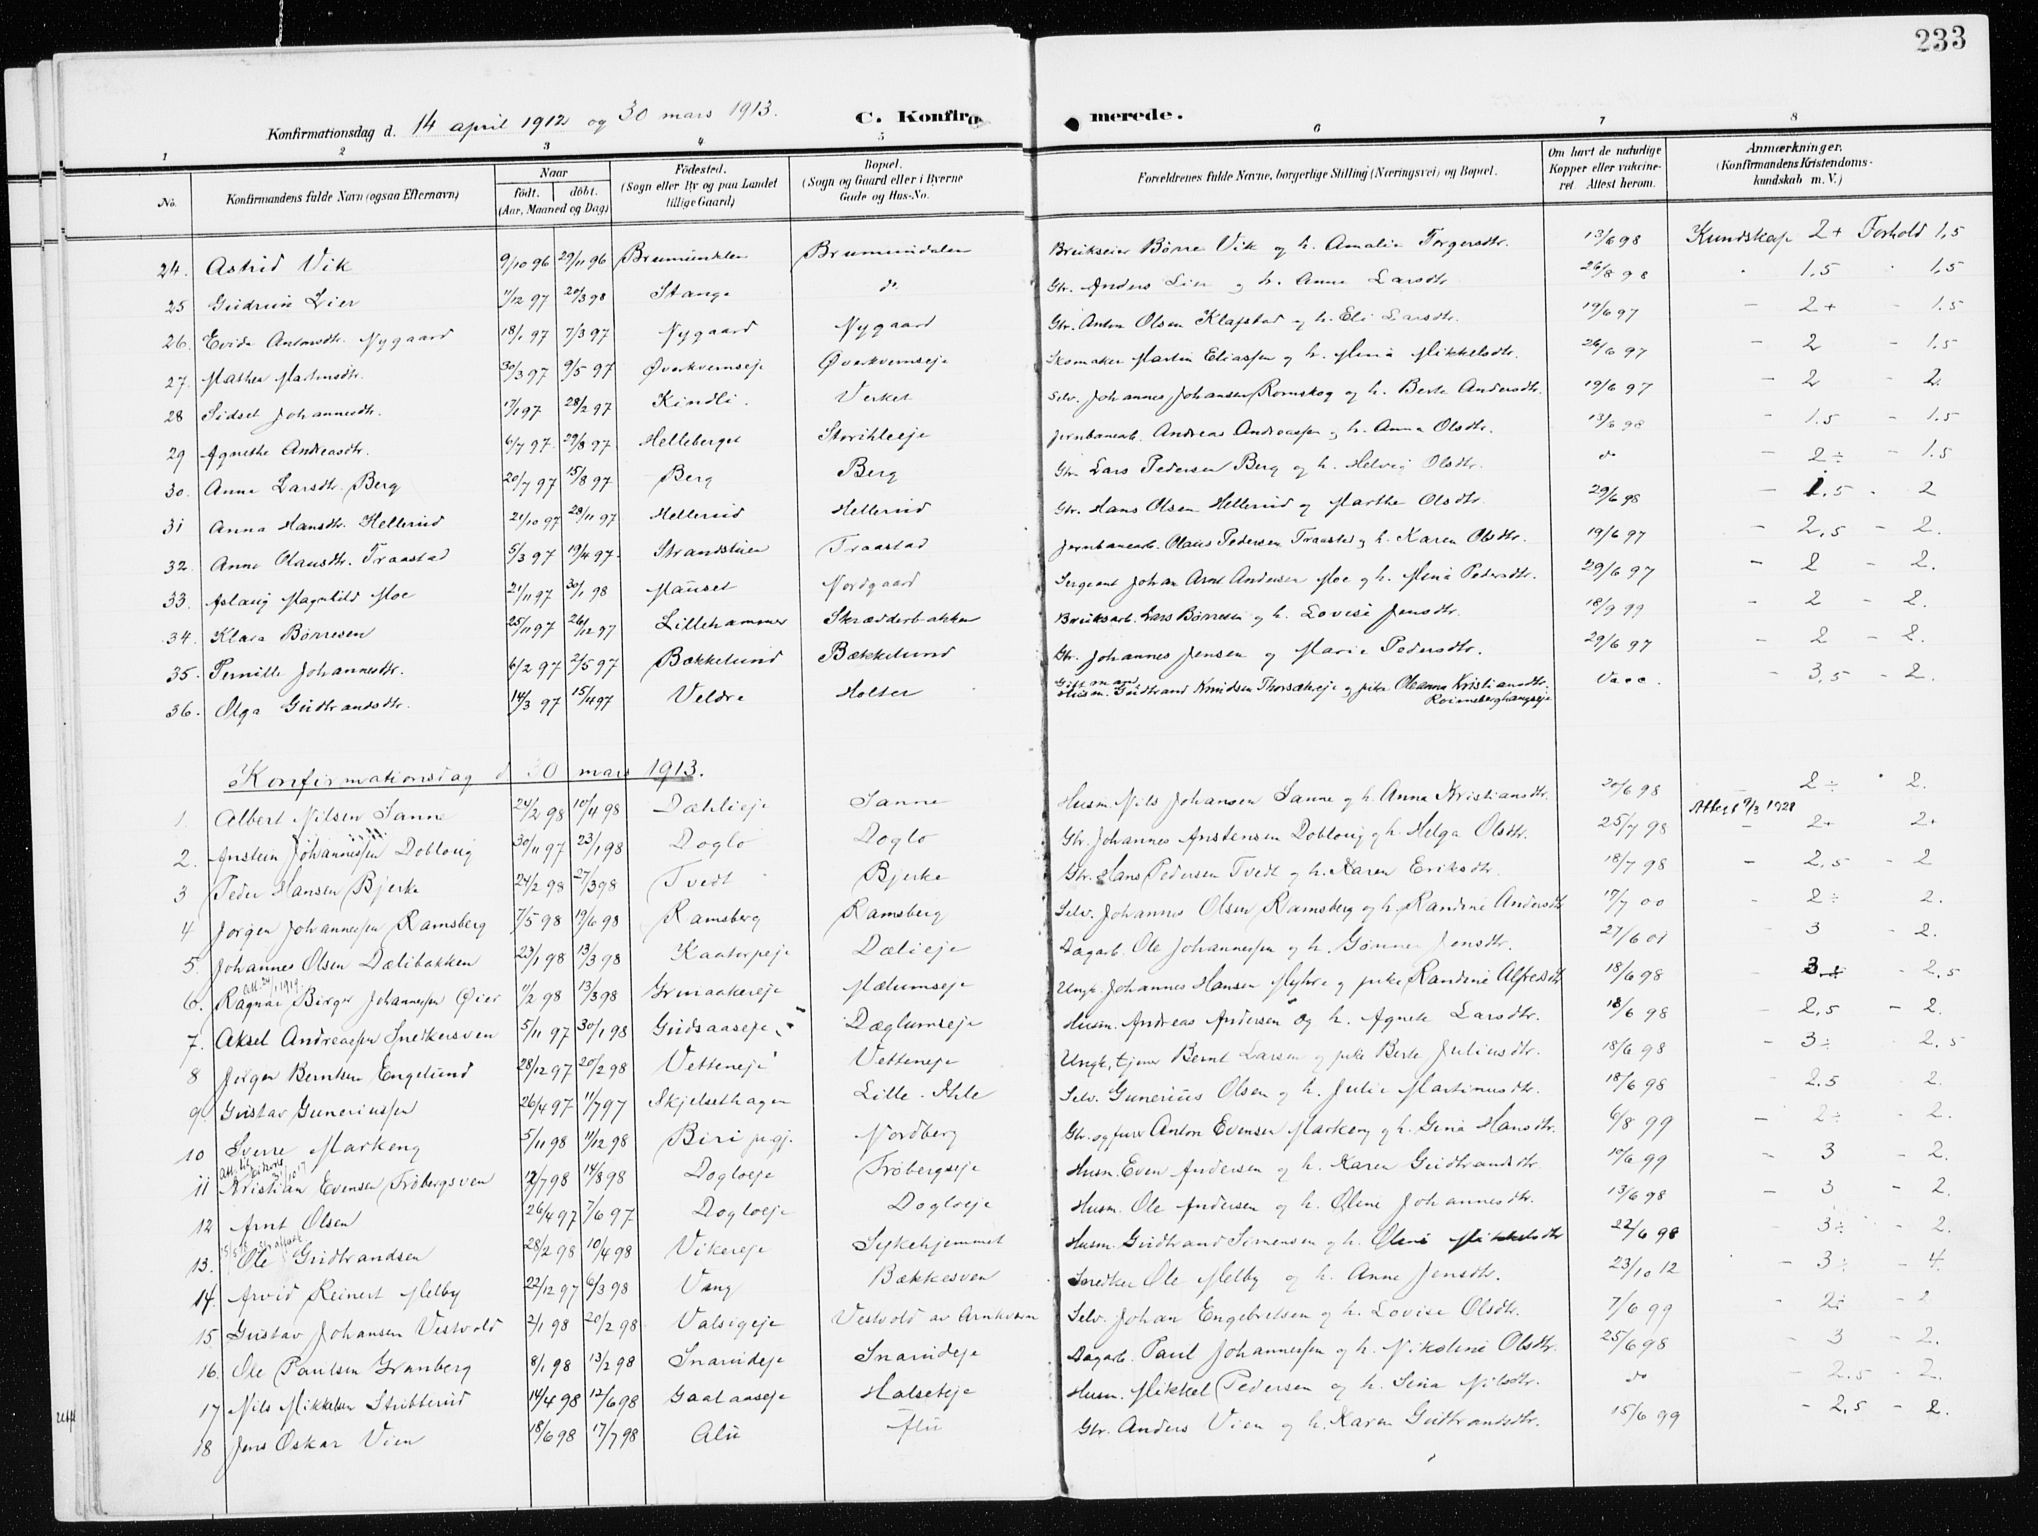 233
Konfirmationsdag d. 14 april 1912 og 30 mars 1913. C. Konfirmerede.
1 2 3 4 5 6 7 8
No. Konfirmandens fulde Navn (ogsaa Efternavn) Naar født. døbt. (Aar, Maaned og Dag) Fødested. (Sogn eller By og paa Landet tillige Gaard) Bopæl. (Sogn og Gaard eller i Byerne Gade og Hus-No. Forældrenes fulde Navne, borgerlige Stilling (Næringsvei) og Bopæl. Om havt de naturlige Kopper eller vakcineret. Attest herom. Anmærkninger. (Konfirmandens Kristendomskundskab m. V.)
24. Astrid Vik 9/10 96 29/11 96 Brumundalen Brumundalen Brukseier Børre Vik og h. Amalie Torgersdtr. 13/6 98 Kundskap 2+ Forhold 1,5
25 Gudrun Lier 11/12 97 20/3 98 Stange do Gbr. Anders Lier og h. Anne Larsdtr. 26/8 98 1,5 1,5
26. Evida Antonsdtr. Nygaard 18/1 97 7/3 97 Nygaard Nygaard Gbr. Anton Olsen Klapstad og h. Eli Larsdtr. 19/6 97 - 2+ - 1.5
27. Mathea Martinsdtr. 30/3 97 9/5 97 Øverkvernseje Øverkvernseje Skomaker Martin Eliassen og h. Mina Mikkelsdtr. 26/6 97 - 2 - 1.5
28 Sidsel Johannesdtr. 17/1 97 28/2 97 Kindli. Verket Selv. Johannes Johansen Romskog og h. Berte Andersdtr. 19/6 97 - 2 - 2.
29 Agnethe Andreasdtr. 6/7 97. 29/8 97 Helleberget Storihleeje Jernbanearb. Andreas Andreassen og h. Anna Olsdtr. 13/6 98 - 1.5 - 1.5
30. Anne Larsdtr. Berg 20/7 97 15/8 97 Berg Berg Gbr. Lars Pedersen Berg og h. Helvig Olsdtr. do - 2÷ - 1.5
31 Anna Hansdtr. Hellerud 21/10 97 28/11 97 Hellerud Hellerud Gbr. Hans Olsen Hellerud og Marthe Olsdtr. 29/6 98 - 1.5 - 2
32. Anne Olausdtr. Traastad 5/3 97 19/4 97. Strandstuen Traastad Jernbanearb. Olaus Pedersen Traastad og h. Karen Olsdtr. 19/6 97 2,5 - 2.
33. Aslaug Magnhild Moe 21/11 97 30/1 98 Mauset Nordgaard Sergeant Johan Arnt Andersen Moe og h. Mina Pedersdtr. 29/6 97 - 2 - 2.
34. Klara Børresen 25/11 97 26/12 97 Lillehammer Skrædderbakken Bruksarb. Lars Børresen og h. Lovise Jensdtr. 18/9 99 - 2 - 2.
35. Pernille Johannesdtr. 6/2 97 2/5 97 Bækkelund Bækkelund Gbr. Johannes Jensen og Marie Pedersdtr. 29/6 97 - 2 - 2.
36. Olga Gudbrandsdtr. 14/3 97 15/4 97 Veldre Holter Gift mand Gudbrand Knudsen Thorsætreje og pike Oleanna Kristiansdtr. Vacc. - 3,5 - 2.
Konfirmationsdag d 30 mars 1913.
1. Albert Nilsen Sanne 24/2 98 10/4 98 Dæhlieje Sanne Husm. Nils Johansen Sanne og h. Anna Kristiansdtr. 20/6 98 2÷ 2.
Attest 9/3 1928
2. Anstein Johannessen Dobloug 30/11 97 23/1 98 Doglo Doglo Gbr. Johannes Anstensen Dobloug og h. Helga Olsdtr. 25/7 98 - 2+ 2+
3 Peder Hansen Bjerke 24/2 98 27/3 98 Tvedt Bjerke Gbr. Hans Pedersen Tvedt og h. Karen Eriksdtr. 18/7 98 - 2.5 - 2
4 Jørgen Johannessen Ramsberg 7/5 98 19/6 98 Ramsberg Ramsberg Selv. Johannes Olsen Ramsberg og h. Randine Andersdtr. 17/7 00 - 2÷ 2.
5. Johannes Olsen Dælibakken 23/1 98 13/3 98 Kaatorpeje Dælieje Dagarb. Ole Johannessen og h. Gønner Jensdtr. 27/6 01 - 3 - 2.
Att. 24/1 1919.
6. Ragnar Birger Johannessen Øier 11/2 98 13/3 98 Grinaakereje Mælumseje Ungk. Johannes Hansen Myhre og pike Randine Alfredsdtr. 18/6 98 3÷ - 2,5
7. Aksel Andreassen Snekkersven 5/11 97 30/1 98 Gudsaaseje Dæglumseje Husm. Andreas Andersen og h. Agnete Larsdtr. 18/6 98 - 2.5 - 2.
8 Jørgen Berntsen Engelund 28/12 97 20/2 98 Vetteneje Vetteneje Ungk. tjener Bernt Larsen og pike Berte Juliusdtr. 18/6 98 - 3÷ 2.5
9. Gustav Guneriussen 26/4 97 11/7 97 Skjelsethagen Lille-Ihle Selv. Gunerius Olsen og h. Julie Martinusdtr. 18/6 98 2.5 2.
10 Sverre Markeng 5/11 98 11/12 98 Biri prgj. Nordberg Gbr. og furer Anton Evensen Markeng og h. Gina Hansdtr. 6/8 99 - 2÷ - 2.
11 Kristian Evensen Frøbergsven 12/7 98 14/8 98 Dogloeje Frøbergseje Husm. Even Andersen og h. Karen Gudbrandsdtr. 10/6 99 - 3 - 2.
12 Arnt Olsen 26/4 97 7/6 97 Dogloeje Dogloeje Husm. Ole Andersen og h. Oline Johannesdtr. 13/6 98 - 3 - 2.
13. Ole Gudbrandsen 28/2 98 10/4 98 Vikereje Sykehjemmet Husm. Gudbrand Simensen og h. Oline Mikkelsdtr 22/6 98 3÷ - 2.
14. Arvid Reinert Melby 22/12 97 6/3 98 Vang Bækkesven Snedker Ole Melby og h. Anne Jensdtr. 23/10 12 - 3÷ - 4.
15 Gustav Johansen Vestvold 2/1 98 20/2 98 Valsigeje Vestvold av Arnkvern Selv. Johan Engebretsen og h. Lovise Olsdtr. 7/6 99 - 2÷ - 2
16. Ole Paulsen Granberg 8/1 98 13/2 98 Snarudeje Snarudeje Dagarb. Paul Johannessen og h. Nikoline Olsdtr. 25/6 98 - 3 - 2.
17 Nils Mikkelsen Stubberud 14/4 98 12/6 98 Gaalaaseje Halseteje Husm. Mikkel Pedersen og h. Sina Nilsdtr. do - 2.5 - 2.
18 Jens Oskar Vien 18/6 98 17/7 98 Alu Alu Gbr. Anders Vien og h. Karen Gudbrandsdtr. 15/6 99 - 2.5 - 2.